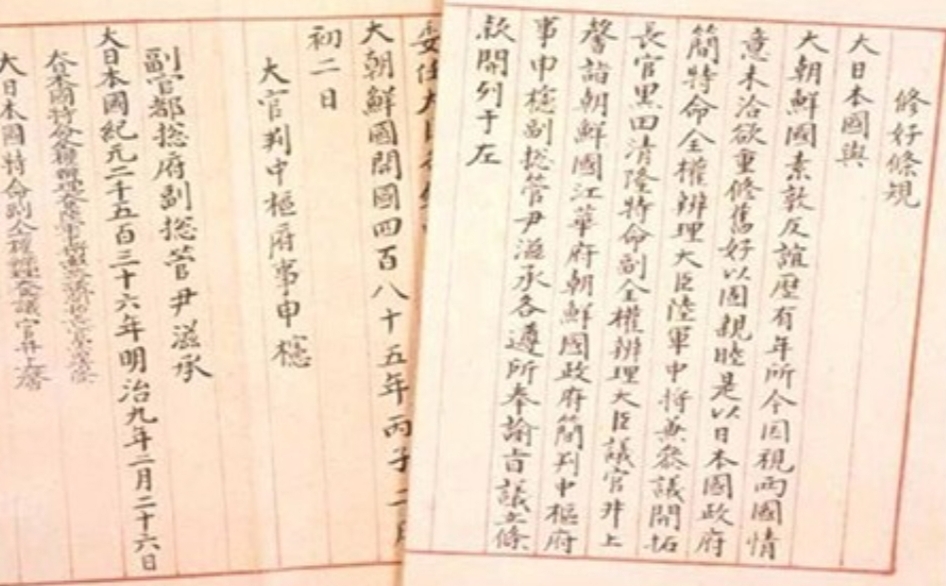 修好條規
大日本國與
大朝鮮國素敦友誼歷有年所今因視兩國情
意未洽欲重修舊好以固親睦是以日本國政府
簡特命全權辨理大臣陸軍中將兼參議開拓
長官黑田清隆特命副全權辨理大臣議官井上
馨詣朝鮮國江華府朝鮮國政府簡判中樞府
事申櫶副総管尹滋承各遵所奉諭旨議立條
款開列于左
大朝鮮國開國四百八十五年丙子二月
初二日
大官判中樞府事申櫶
副官都総府副総管尹滋承
大日本國紀元二千五百三十六年明治九年二月二十六日
大日本國特命副全權辨理大臣議官井上馨